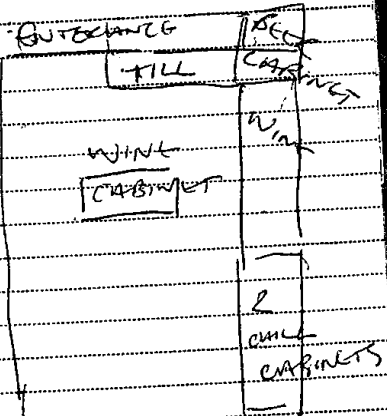 ENTERANCE
BEER
CABINET
TILL
WINE
WINE
CABINET
2
CHILL
CABINETS